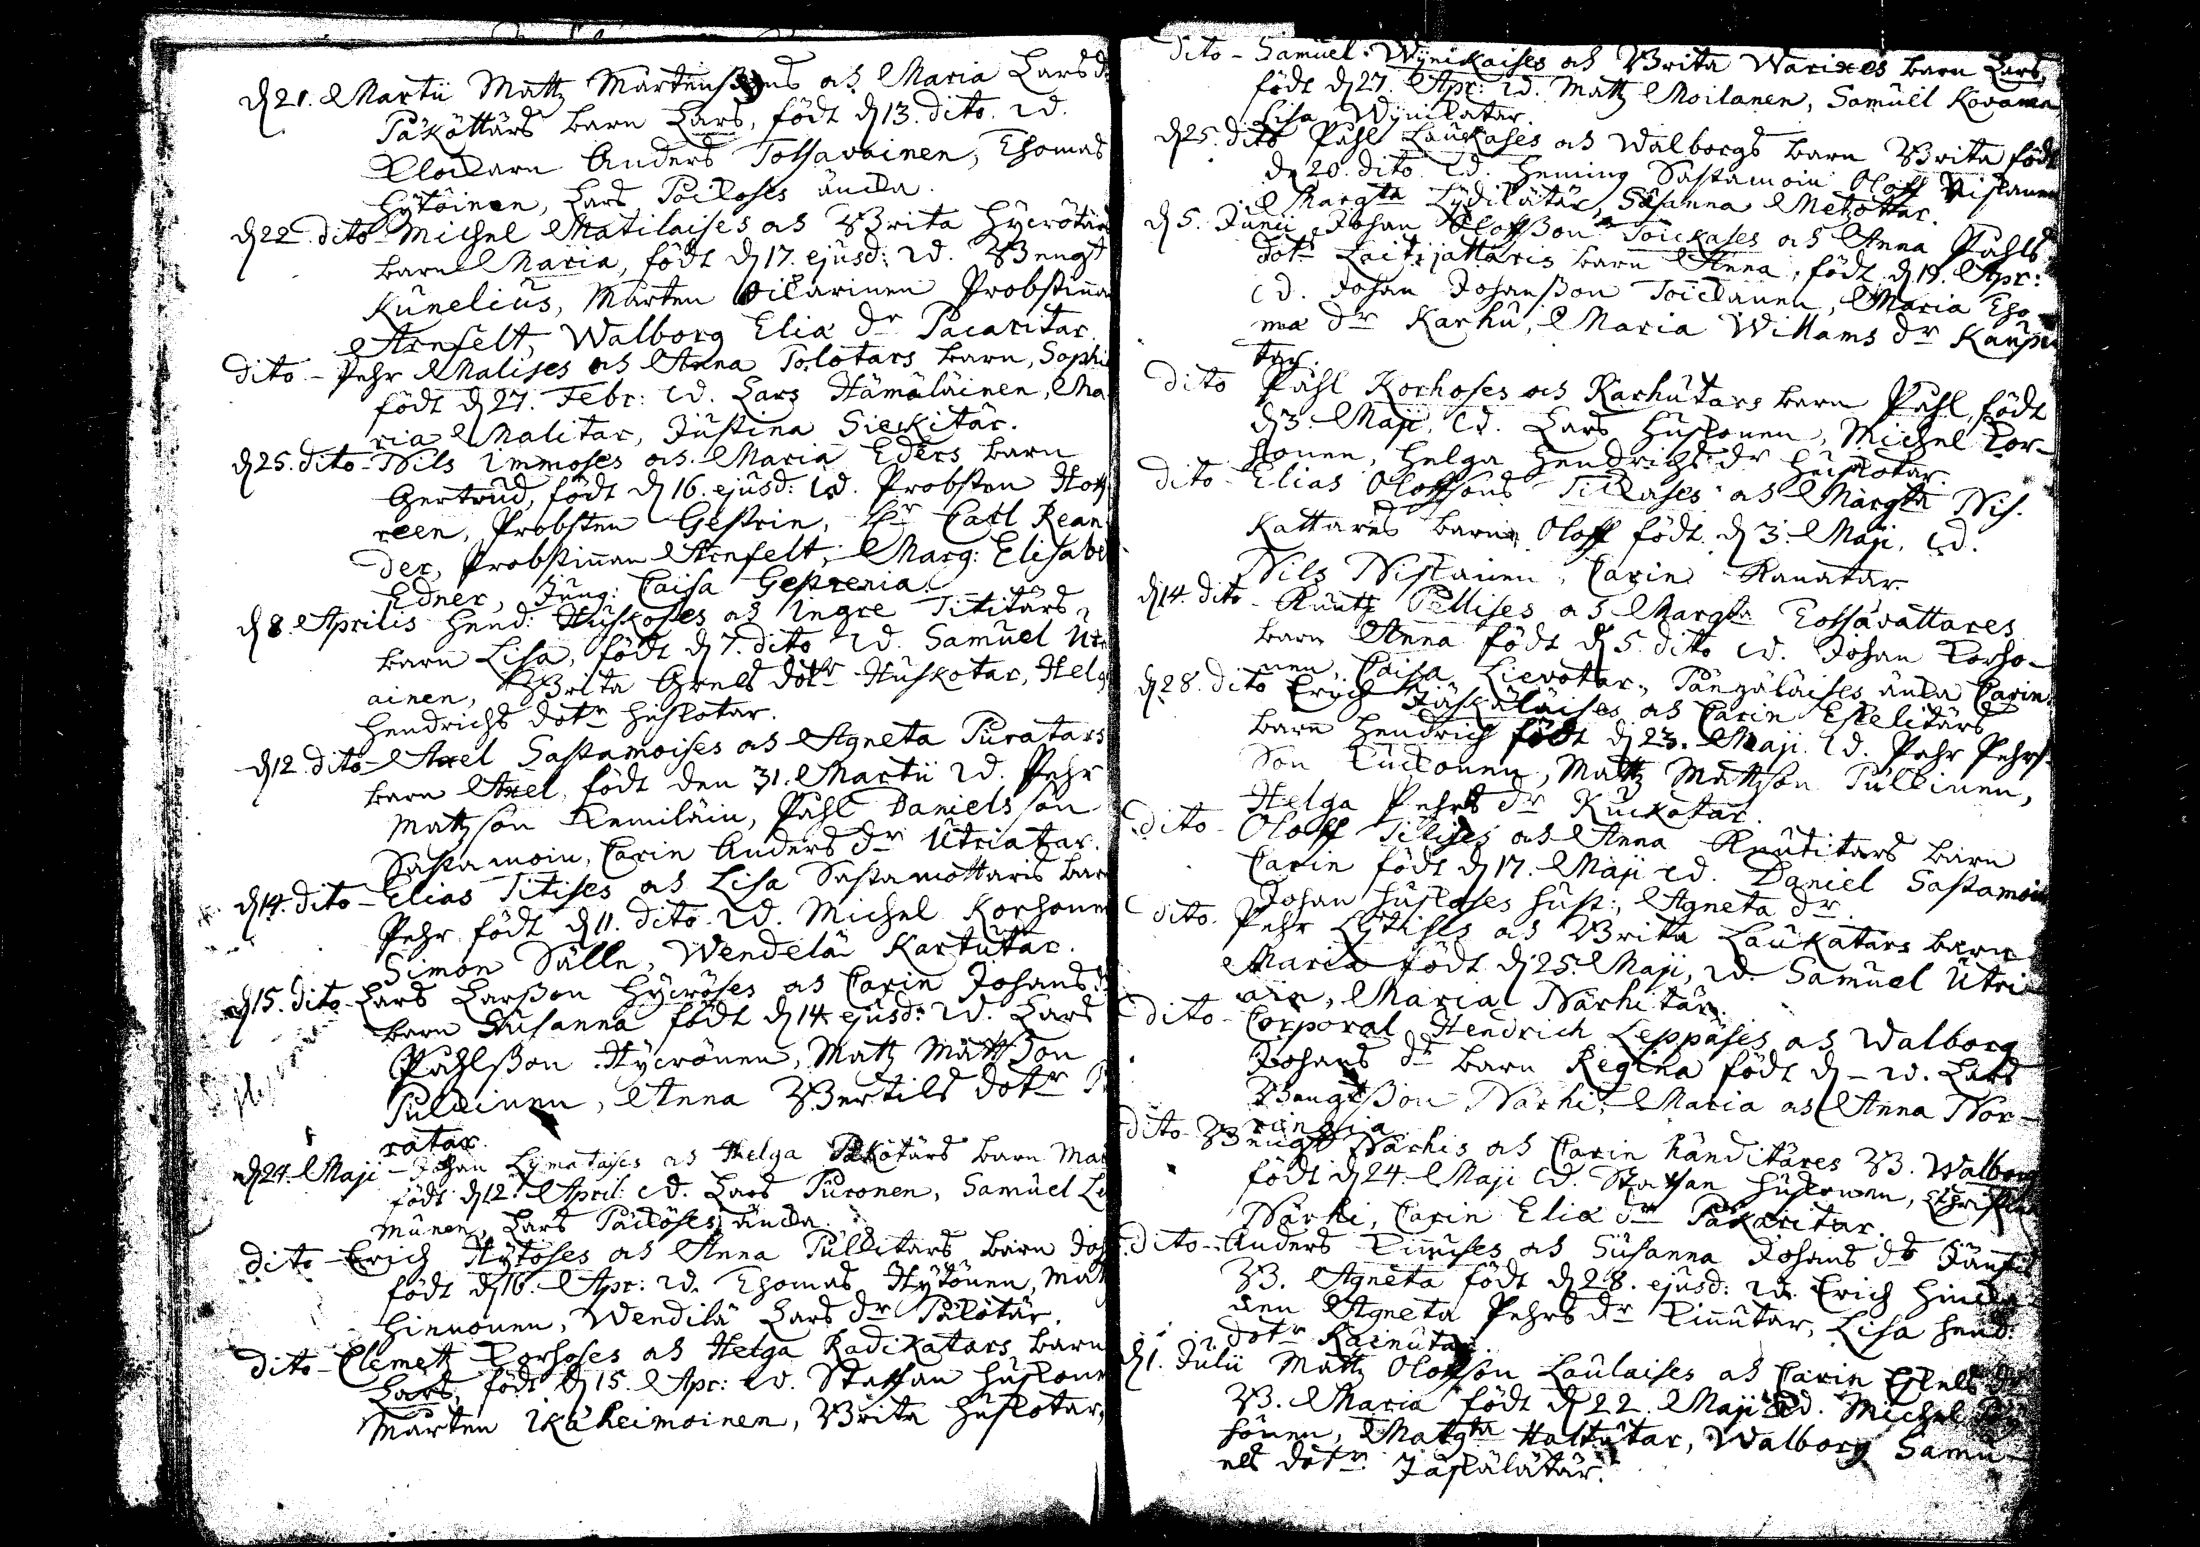 d. 21. Martii Matz Mårtenssons och Maria Lars d:
Påköttärs barn Lars, född d. 13. dito. Td.
Klockarn Anders Tossavainen, Thomas
Hytöinen, Lars Päiköses äncka.
d. 22 dito - Michel Matilaises och Brita Hycrötärs
barn Maria, född d. 17. ejusd: Td. Bengt
Kunelius, Mårten Probstinnan
Arnfelt, Walborg Eliæ dr Pacaritar.
dito - Pehr Malises och Anna Tolotars barn, Sophi
född d. 27. Febr: Td. Lars Hämäläinen, Ma
ria Malitar, Justina Sieckitär.
d. 25. dito - Nils Immoses och Maria Eders barn
Gertrud, född d. 16. ejusd: Td. Probsten Hoff
reen, Probsten Gestrin, Hr Carl Rean
der, Probstinnan Arnfelt, Marg: Elisabet
Edner, Jung: Caisa Gestrenia.
d. 8. Aprilis Hend: Huskoses och Ingre Tititärs
barn Lisa, född d. 7. dito Td. Samuel Utri
ainen, Brita Grels dotr Huskotar, Helga
Hendrichs dotr Huskotar.
d. 12. dito - Axel Sastamoises och Agneta Puratars
barn Axel, född den 31. Martii Td. Pehr
Matzson Remiläin, Påhl Danielsson
Sastamoin, Carin Anders dr Utriatar.
d. 14. dito - Elias Titises och Lisa Sastamottaris barn
Pehr född d. 11. dito Td. Michel Korhonen
Simon Sälle, Wendelä Kartutar.
d. 15. dito - Lars Larsson Hycröses och Carin Johans d:
barn Susanna född d. 14. ejusd: Td. Lars
Påhlsson Hycrönen, Matz Mattsson
Pulkinen, Anna Bertils dotr
ratar.
d. 24. Maji - Johan Lymataises och Helga Påkötärs barn
född d. 12. April: Td. Lars Puronen, Samuel
munen, Lars Päiköses äncka.
dito - Erich Hytöses och Anna Pulkitars barn Joh
född d. 16. Apr: Td. Thomas Hytönen, Matz
Hinnonen, Wendilä Lars dr Päikötär.
dito - Clemetz Korhoses och Helga Radikatars barn
Lars, född d. 15. Apr: Td. Staffan Huskonen
Mårten Ikäheimoinen, Brita Huskotar,
dito - Samuel Wynikaises och Brita Warixes barn Lars,
född d. 27. Apr: Td. Matz Moilanen, Samuel Kovanen
Lisa Wynikatar.
d. 25. dito Påhl Laukases och Walborgs barn Brita född
d. 20. dito Td. Heming Sastamoin Oloff Niskanen
Margta Lydikätär, Susanna Metzottar.
d. 5. Junii Johan Oloffson Toickases och Anna Påhls
dotr Laitijattaris barn Anna, född d. 19. Apr:
Td. Johan Johansson Toickanen, Maria Tho
mæ dr Karhu, Maria Willams dr Kaupi
tar.
dito Påhl Korhoses och Karhutars barn Påhl, född
d. 3. Maji, Td. Lars Huskonen, Michel Kor-
honen, Helga Hendrichs dr Huskotar.
dito - Elias Oloffsons Tickases och Margta Nis.
kattares barn Oloff född d. 3. Maji, Td.
Nils Niskainen, Carin Ranatar.
d. 14. dito - Knutz Pellises och Margta Tossavattares
barn Anna född d. 5. dito Td. Johan Korho-
nen, Caisa Lievotar, Pänzäläises äncka Carin.
d. 28. dito Erich Jäskäläises och Carin Eskelitärs
barn Hendrich född d. 23. Maji Td. Pehr Pehrs-
son Kuckonen, Matz Mattzson Pulkinen,
Helga Pehrs dr Kuckotar.
dito - Oloff Tikises och Anna Knutitars barn
Carin född d. 17. Maji Td. Daniel Sastamoin
Johan Huskoses hust:, Agneta dr.
dito. Pehr Lytises och Brita Laukatars barn
Maria född d. 25. Maji, Td. Samuel Utri-
ain, Maria Närhitär.
dito - Corporal Hendrich Leppäses och Walborg
Johans dr barn Regina född d. - Td. Lars
Bengtsson Närhi, Maria och Anna Nor-
ringia
dito - Bengt Närhis och Carin Känditäres B. Walborg
född d. 24. Maji Td. Staffan Huskonen, Christian
Närhi, Carin Eliæ dr Päkäritar.
dito - Anders Kinnises och Susanna Johans dr
B. Agneta född d. 28. ejusd: Td. Erich Hincka-
nen Agneta Pehrs dr Kinnutar, Lisa Hend:
dotr Kainutar.
d. 1. Julii Matz Oloffson Laulaises och Carin Eskels dr
B. Maria född d. 22. Maji Td. Michel
hönen, Margta Haltutar, Walborg Samu-
els dotr Jäskälätär.